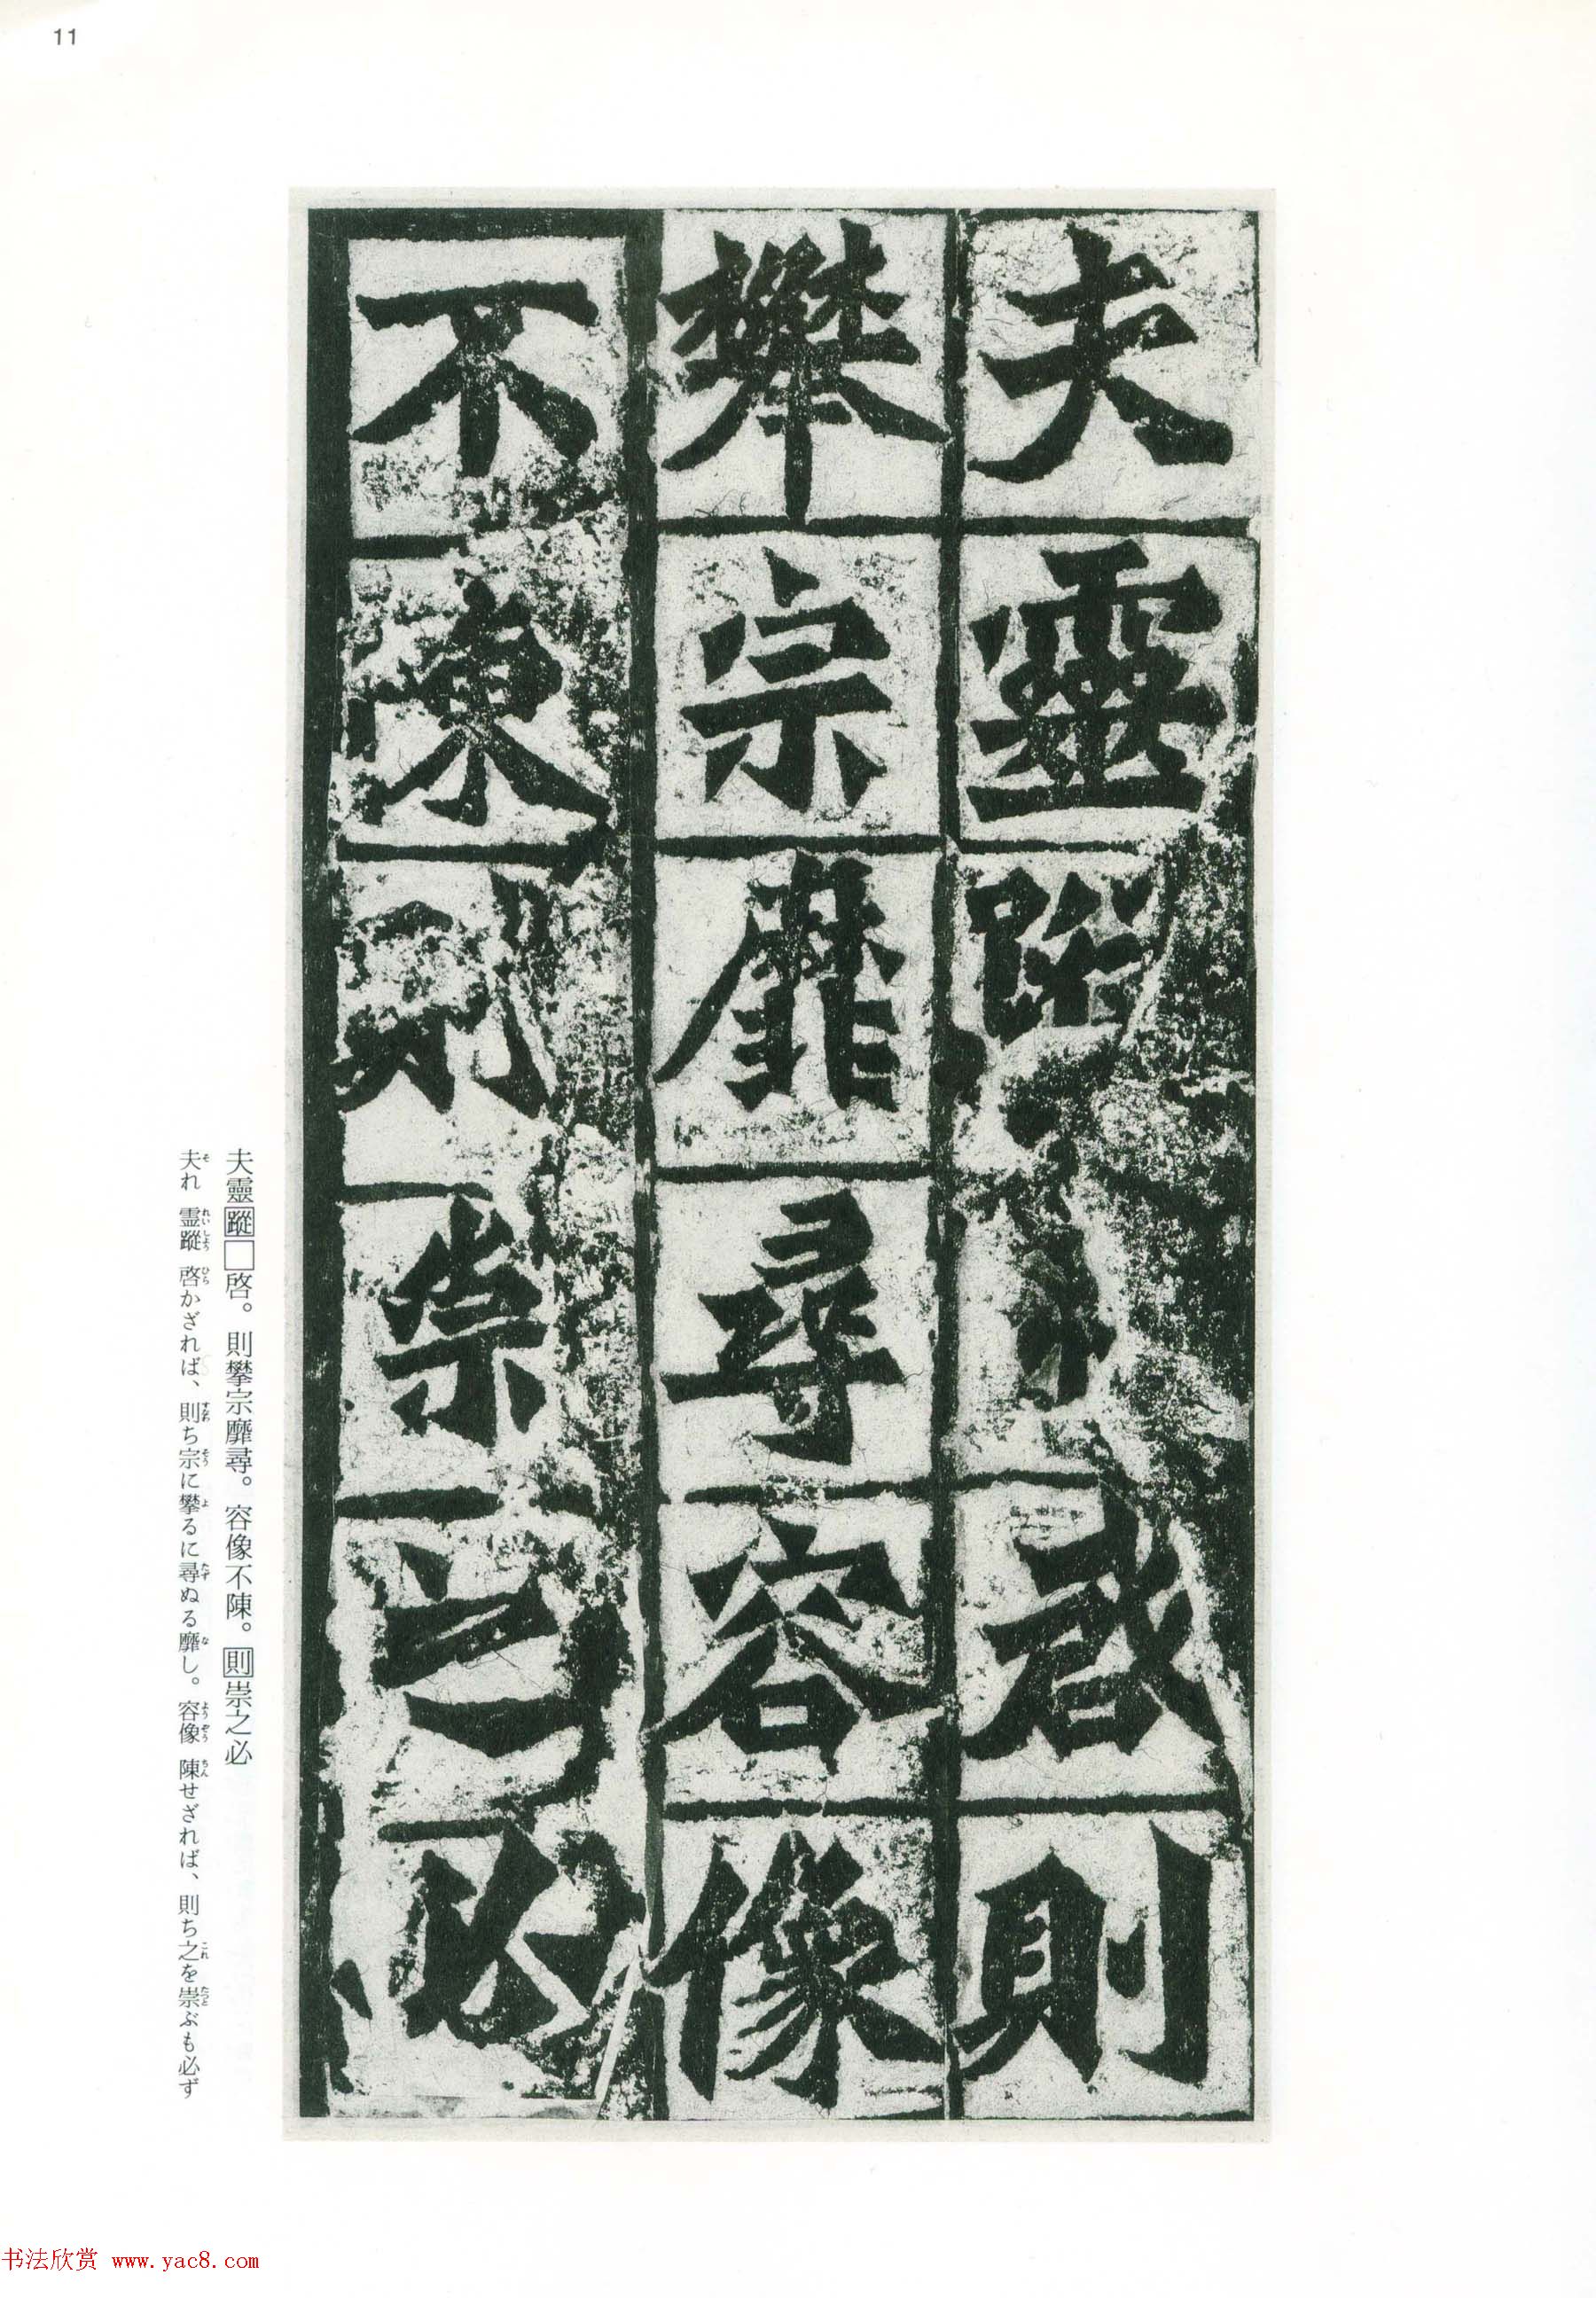 11
夫靈蹤□啓則
攀宗靡尋容像
不陳則崇之必
夫靈蹤□啓。則攀宗靡尋。容像不陳。則崇之必
夫れ 霊蹤 啓かざれば、則ち宗に攀るに尋ぬる靡し。容像 陳せざれば、則ち之を崇ぶも必ず
书法欣赏 www.yac8.com